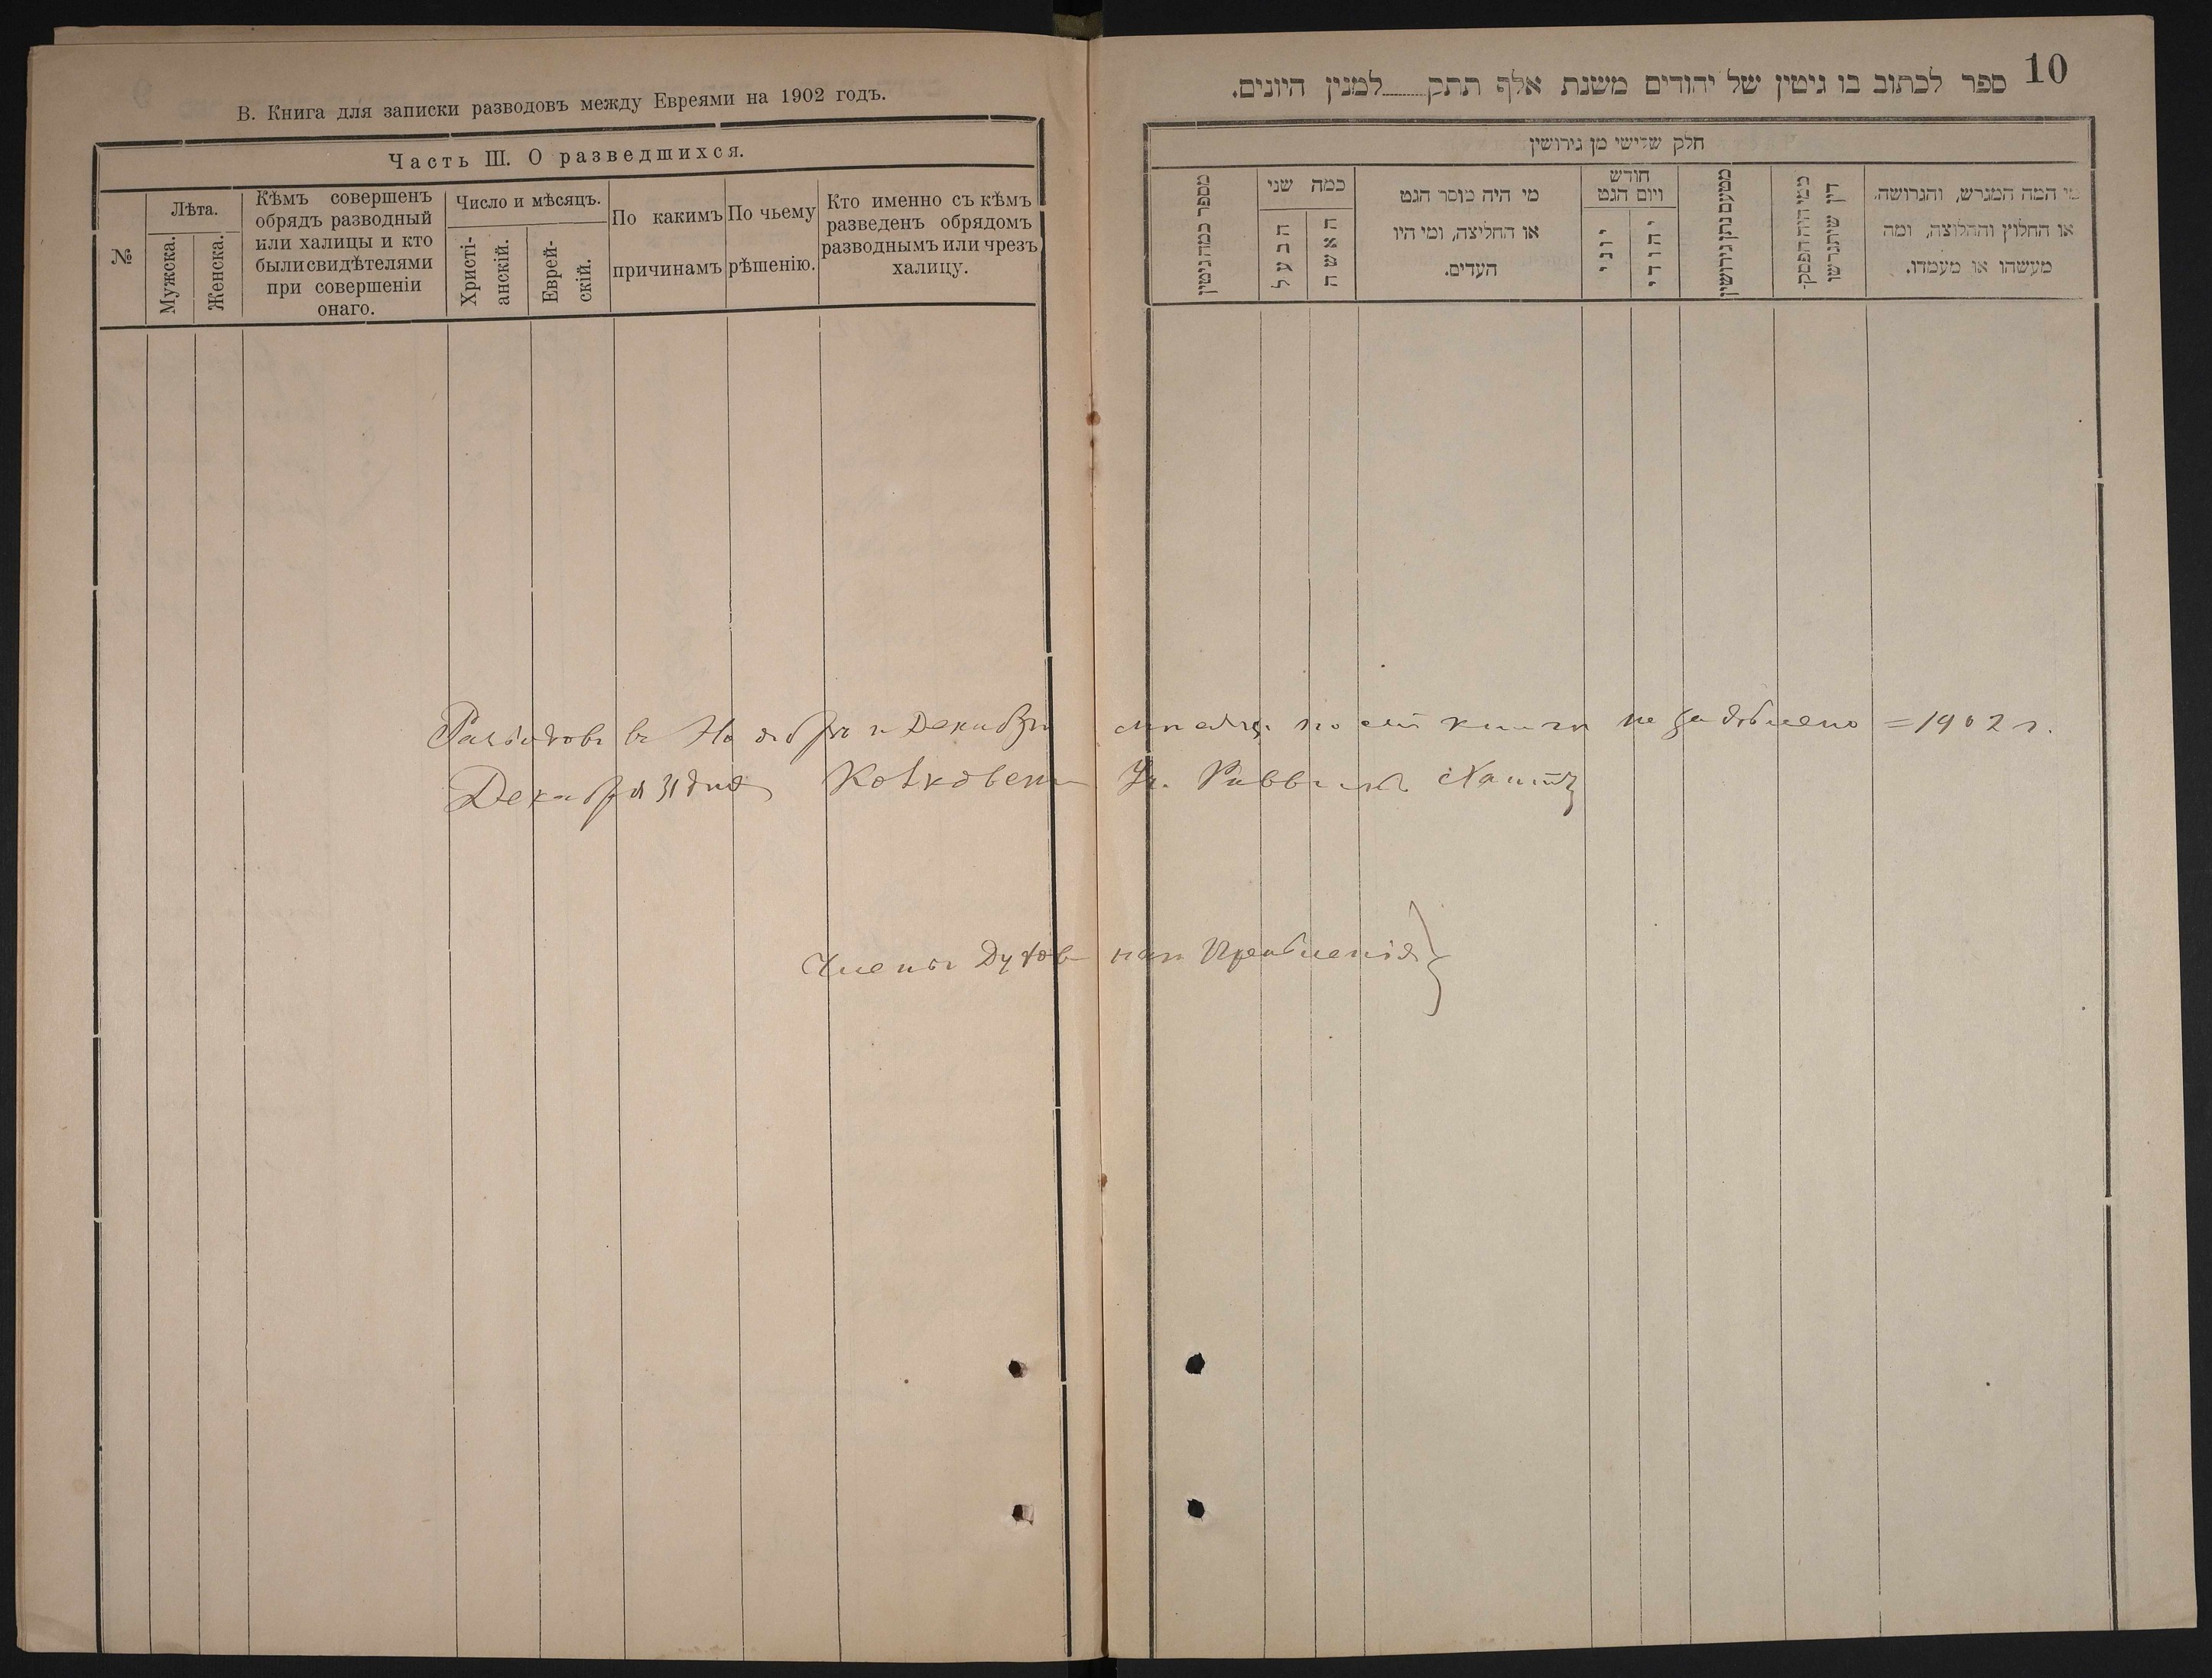 В. Книга для записки разводовъ между Евреями на 1902 годъ.
Часть III. О разведшихся.
№
Лѣта.
Мужска.
Женска.
Кѣмъ совершенъ
обрядъ разводный
или халицы и кто
были свидѣтелями
при совершеніи
онаго.
Число и мѣсяцъ.
Христі-
анскій.
Еврей-
скій.
По какимъ
причинамъ
По чьему
рѣшенію.
Кто именно съ кѣмъ
разведенъ обрядомъ
разводнымъ или чрезъ
халицу.
10
ספר לכתוב בו גיטין של יהודים משנת אלף תתק......למנין היונים.
חלק שלישי מן גירושין
מספר כמה גיטין
כמה שני
הבעל
האשה
מי היה מוסר הגט
או החליצה, ומי היו
העדים.
חודש
ויום הגט
יוני
יהודי
מטעם נתן גירושין
מפי היה הפסק
דין שיתגרשו
מי המה המגרש, והגרושה,
או החלוץ והחלוצה, ומה
מעשהו או מעמדו.
Разводовъ въ Ноябрѣ и Декабрѣ мѣсяцѣ по сей книги не задовлено = 1902 г.
Декабря 31 дня Раввинъ
Члены Духовнаго Правленія }